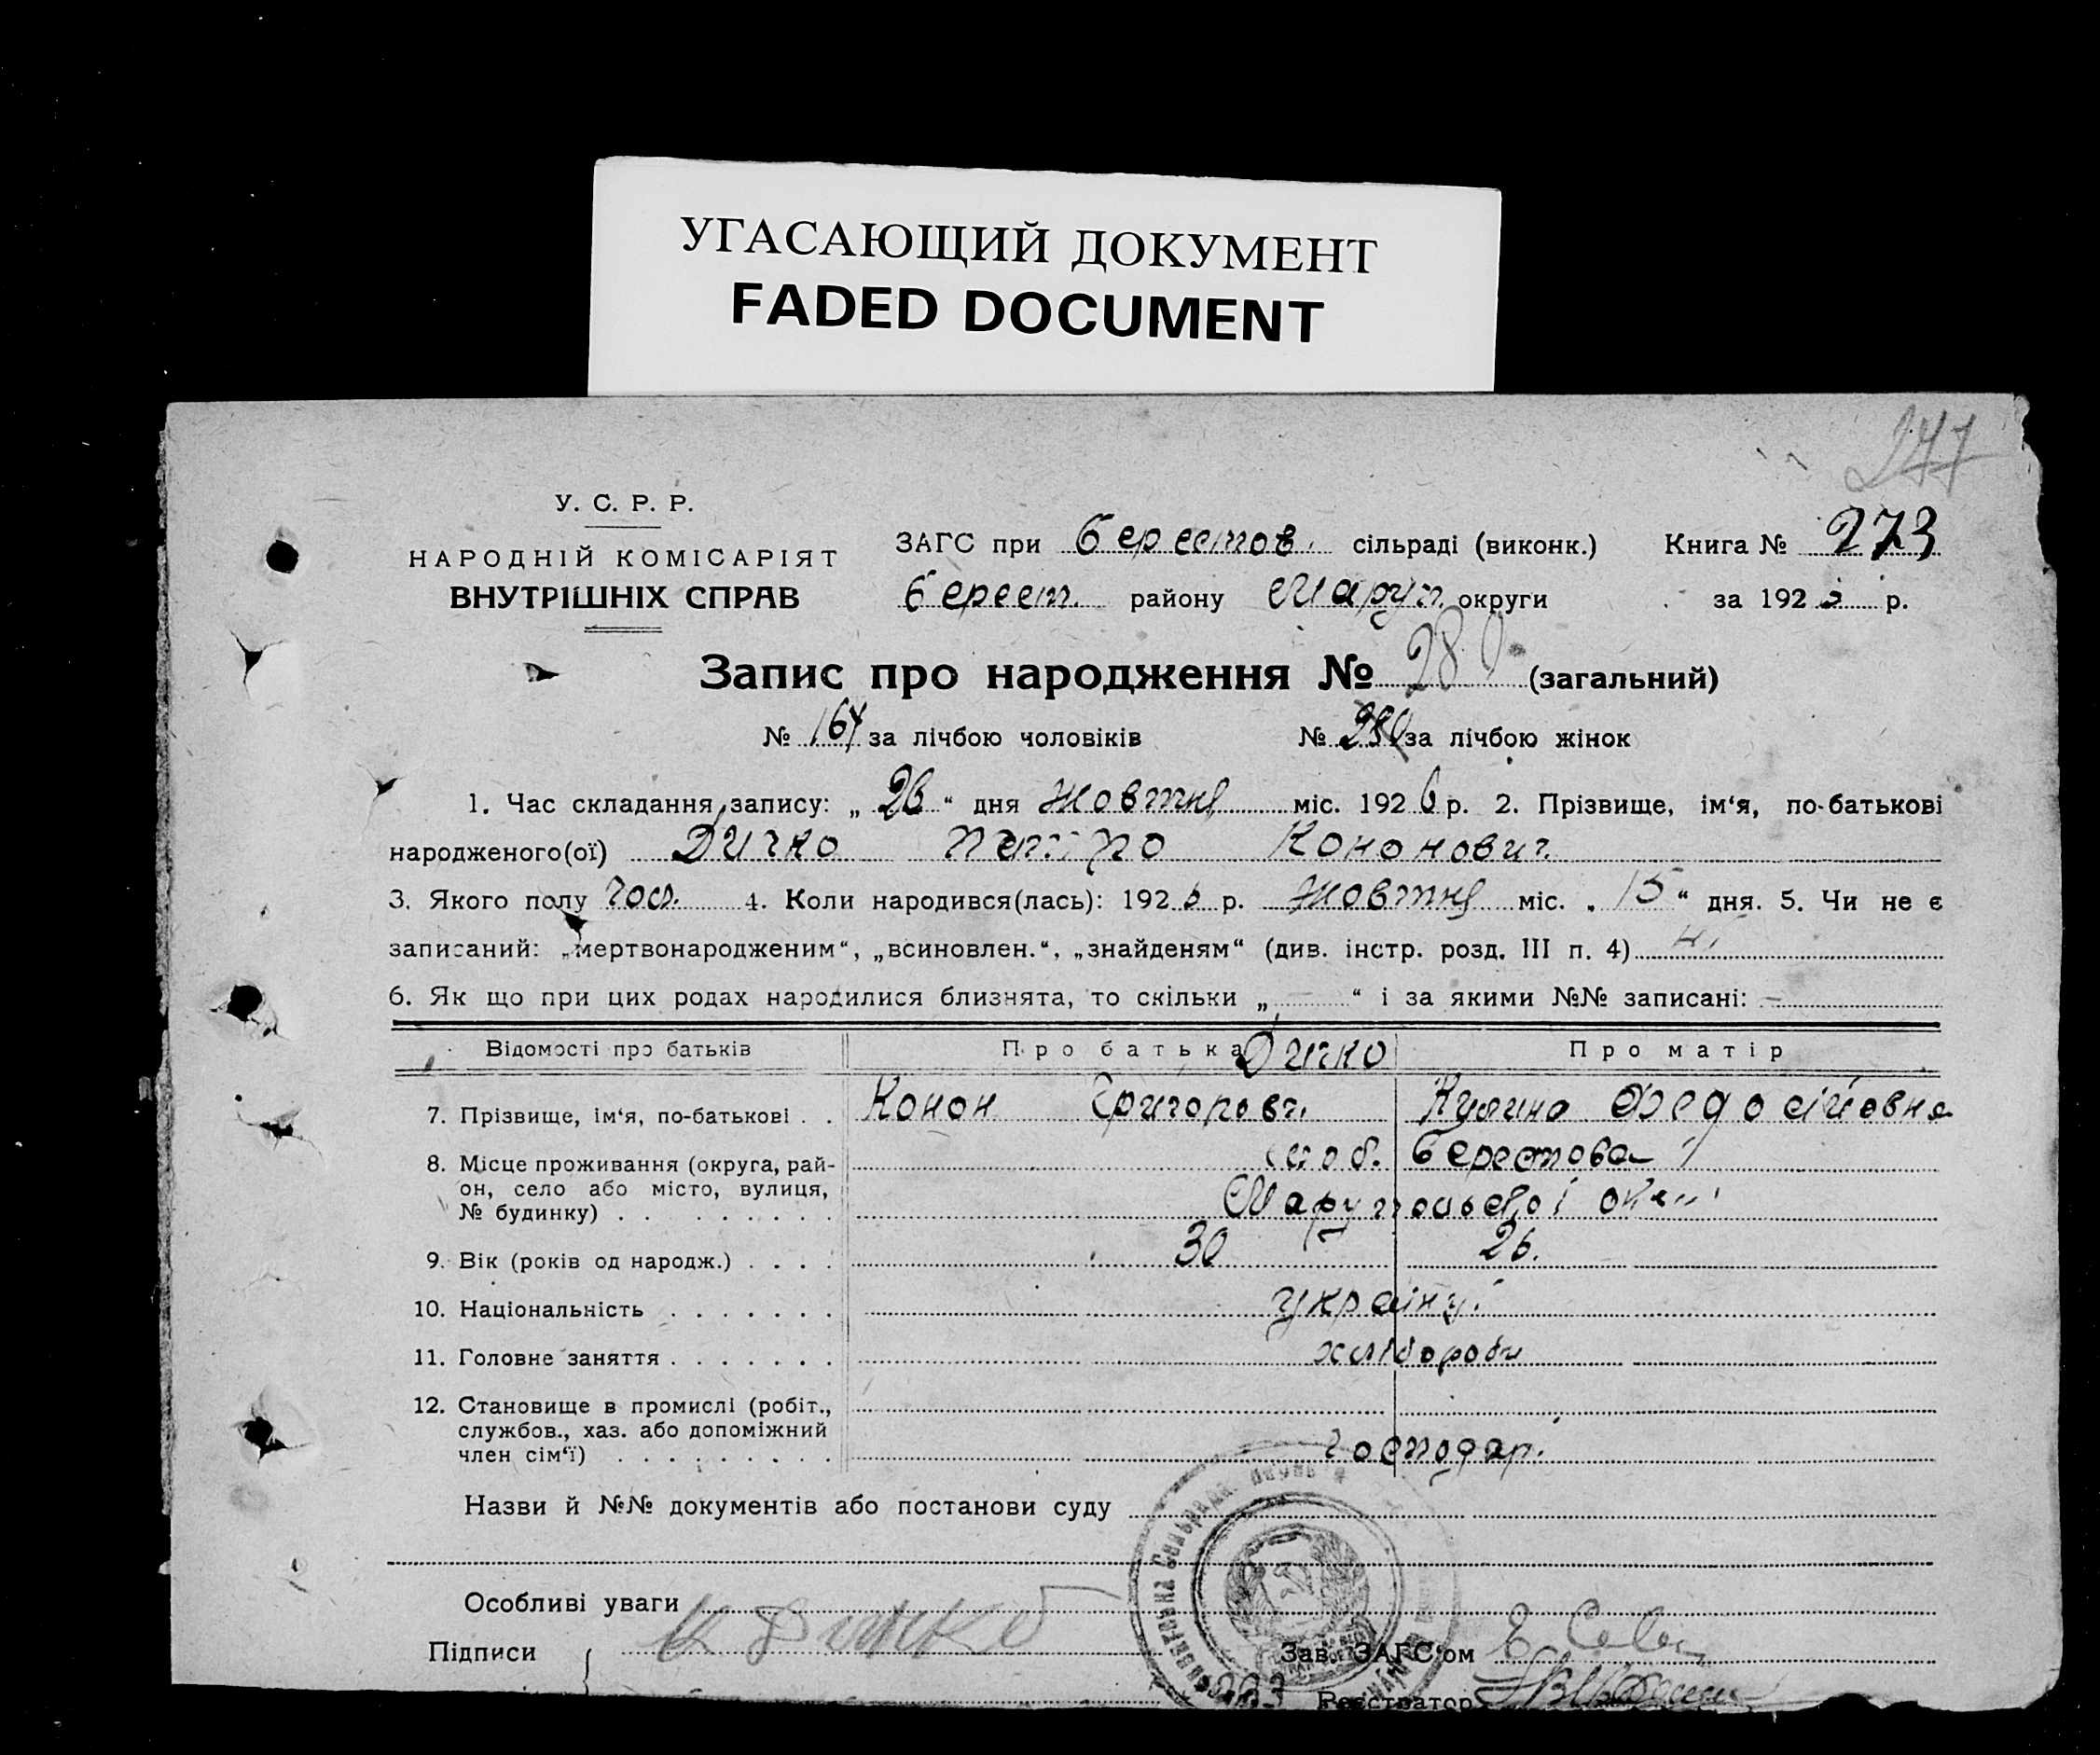 УГАСАЮЩИЙ ДОКУМЕНТ
FADED DOCUMENT
277
У. С. Р. Р.
НАРОДНІЙ КОМІСАРІЯТ
ВНУТРІШНІХ СПРАВ
ЗАГС при Берестов. сільраді (виконк.) Книга № 273
Берест. району Маруп. округи за 192 р.
Запис про народження № 280 (загальний)
№ 164 за лічбою чоловіків № 280 за лічбою жінок
1. Час складання запису: „ 26 “ дня Жовтня міс. 192 6 р. 2. Прізвище, ім‘я, по-батькові
народженого(ої) Дичко Петро Кононович
3. Якого полу чол. 4. Коли народився(лась): 192 6 р. Жовтня міс. „ 15 “ дня. 5. Чи не є
записаний: „мертвонародженим“, „всиновлен.“, „знайденям“ (див. інстр. розд. III п. 4) ні
6. Як що при цих родах народилися близнята, то скільки „ — “ і за якими №№ записані: —
Відомості про батьків Про батька Дичко Про матір
7. Прізвище, ім‘я, по-батькові . . Конон Григорович Кулина Федосіївна
8. Місце проживання (округа, рай-
он, село або місто, вулиця,
№ будинку) . . . . . . . . слоб. Берестова
Марупольської окр.
9. Вік (років од народж.) . . . . 30 26.
10. Національність . . . . . . . україн.
11. Головне заняття . . . . . . . хлібороби
12. Становище в промислі (робіт.,
службов., хаз. або допоміжний
член сім‘ї) . . . . . . . . . господар.
Назви й №№ документів або постанови суду
Особливі уваги
Підписи К Дичко Зав. ЗАГС‘ом
Реєстратор